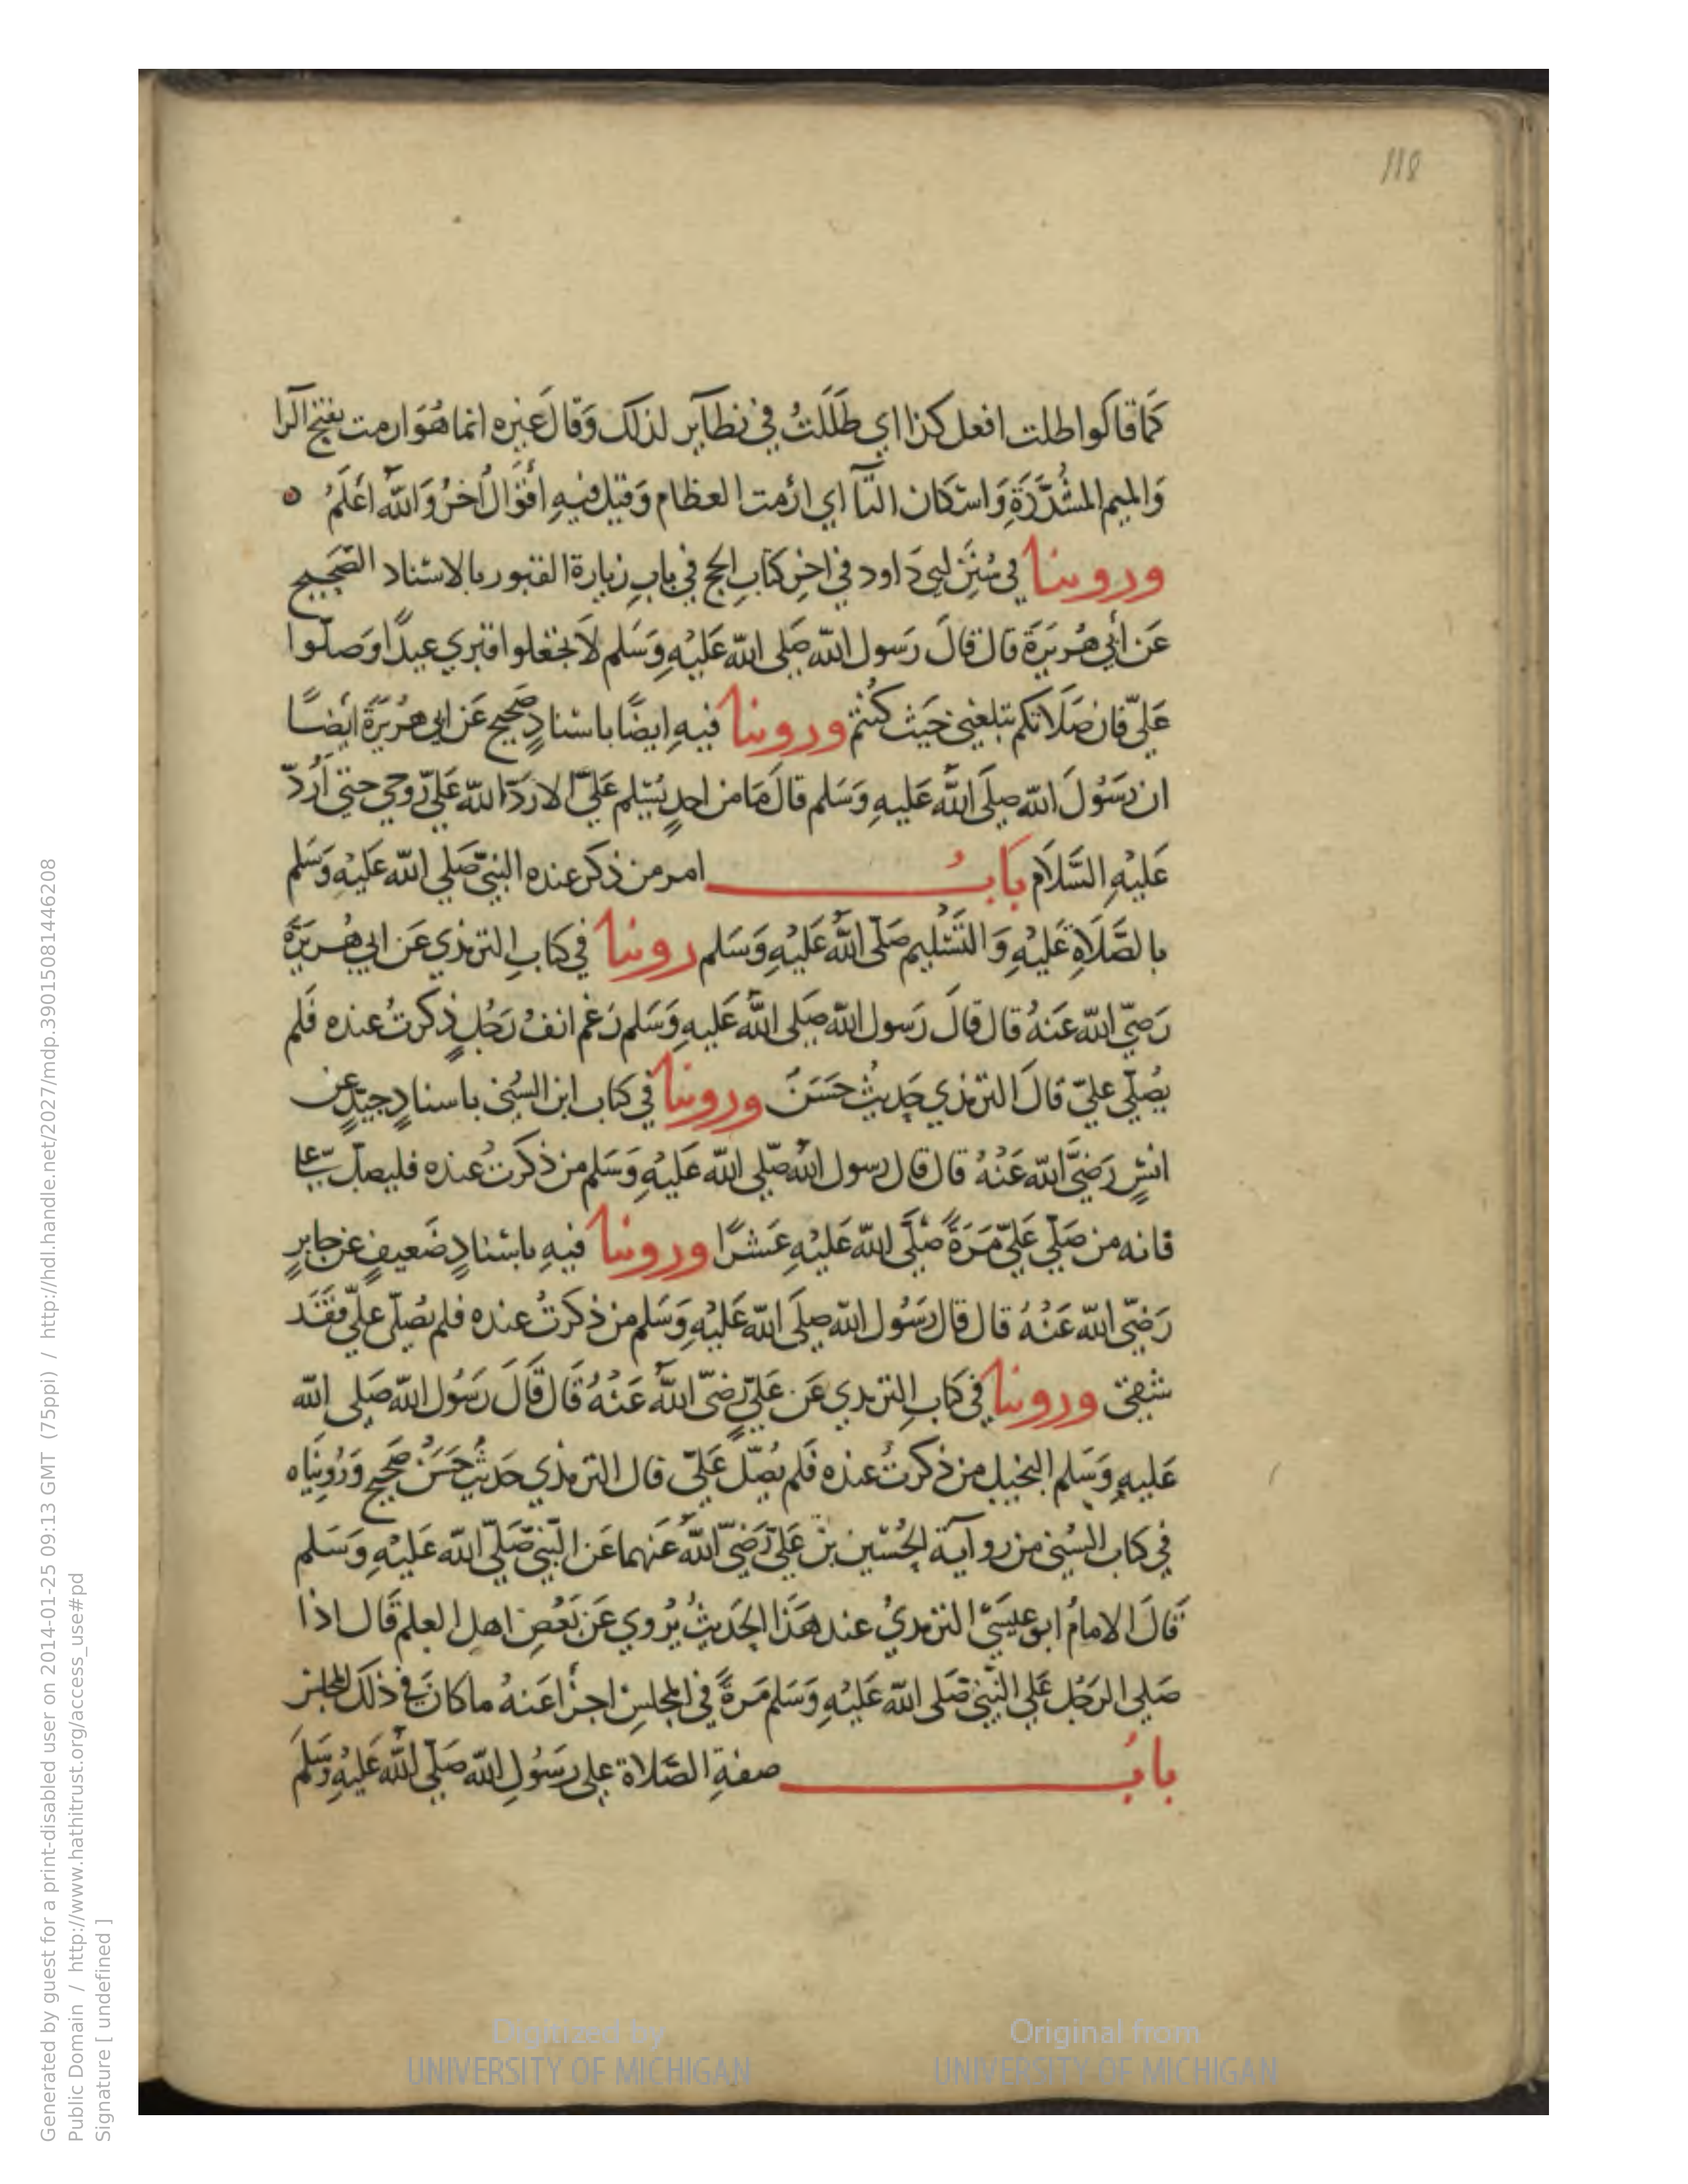 118
كَمَا قَالوا طلت افعل كذا اي طَلَلتُ في نظآير لذلك وَقَالَ غيره انما هُوَ ارمت بفتح الرا
وَالميم المشُدَّدَةِ وَاسْكان التآ اي ارْمت العظام وَقيل فيهِ أقوَالُ أخرُ وَاللهُ اعَلمُ
وروينا في سُنَنِ ابي دَاود في اخِر كتابِ الحج في بابِ زيارة القبور بالاسْناد الصَّحيح
عَن أبي هُريَرَة قال قالَ رَسول الله صَلى الله عَليْهِ وَسَلم لاَ تجعَلوا قبري عيدًا وَصلّوا
عَليّ فان صَلَاتكم تبلغني حَيث كنُتم وروينا فيهِ ايضًا باسْنادٍ صَحيح عَن ابي هرُيَرَة أيضًا
ان رَسُولَ الله صلَى اللهُ عَليهِ وَسَلم قالَ مَا من احدٍ يُسَلم عَليَّ الا رَدّ الله عَليّ رُوحي حتى أرُدّ
عَليْهِ السَّلَامَ بابُ امر من ذكرَ عنده النبيّ صَلي الله عَليْهِ وَسَلم
بالصَّلَاةِ عَليْهِ وَالتَّسْليم صَلّى اللهُ عَليْهِ وَسَلم روينا في كتابِ الترمذي عَن ابي هُريرَة
رَضيّ الله عَنهُ قال قالَ رَسول الله صَلى اللهُ عَليهِ وَسَلم رَغم انفُ رَجُلٍ ذكرتُ عنده فَلم
يصُلّي عليّ قالَ الترمذي حَديثُ حَسَنُ وروينا في كتاب ابن السُني باسنادٍ جيّدٍ عن
انسٍ رَضيَّ الله عَنْهُ قال قال رسول اللهُ صَلى الله عَليْهِ وَسَلم من ذكرتُ عنده فليصلّ عَلي
فانه من صَلّي عَليّ مَرَةً صَلَّى الله عَليْهِ عَشرًا وروينا فيهِ باسْنادٍ ضَعيفٍ عن جَابرٍ
رَضيّ الله عَنْهُ قال قال رَسُول الله صلَى الله عَليْهِ وَسَلم من ذكرتُ عنده فلم يصُلّ عليّ فقَد
شقي وروينا في كتابِ الترمدي عَن عَليّ رَضيّ اللهُ عَنْهُ قَال قَالَ رَسُول الله صَلى الله
عَليهِ وَسَلم البخيل من ذكرتُ عنده فَلم يصُلّ عَليّ قال الترمذي حَديثُ حَسَنُ صَحيح وَرُويناه
في كتاب السُني من روآية الحُسَين بن عَليّ رَضيّ اللهُ عَنهما عَن النّبيّ صَلّى الله عَليْهِ وَسَلم
قَالَ الامامُ ابو عيسَي الترمديُ عند هَذا الحَديثُ يُروي عَن بَعْضِ اهل العلم قَال اذا
صَلي الرَجُل عَلي النَّبي صَلى الله عَليْهِ وَسَلم مَرةً في المجلسِ اجزأ عَنهُ ما كانَ في ذلكَ المجلس
بابُ صفةِ الصَّلاة على رَسُولِ الله صَلّى اللهُ عَليْهِ وَسَلَمَ
Digitized by
UNIVERSITY OF MICHIGAN
Original from
UNIVERSITY OF MICHIGAN
Generated by guest for a print-disabled user on 2014-01-25 09:13 GMT (75ppi) / http://hdl.handle.net/2027/mdp.39015081446208
Public Domain / http://www.hathitrust.org/access_use#pd
Signature [ undefined ]